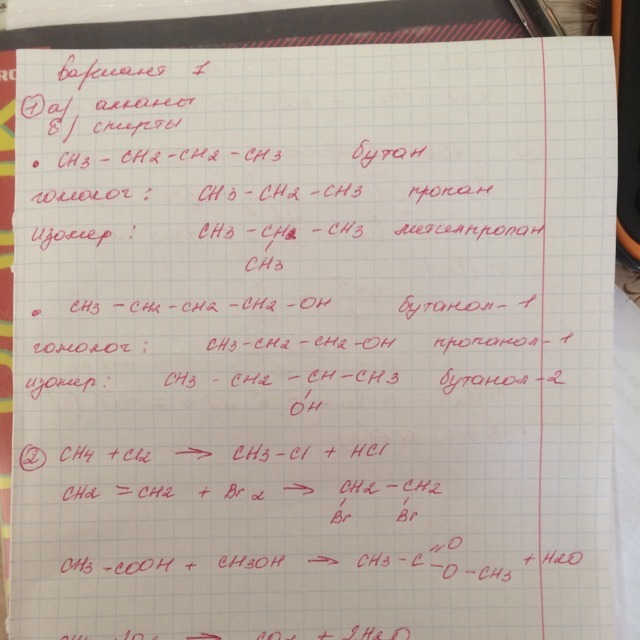 Вариант 1
① а) алканы
б) спирты
• CH3 – CH2 – CH2 – CH3 бутан
гомолог: CH3 – CH2 – CH3 пропан
изомер: CH3 – CH – CH3 метилпропан
CH3
• CH3 – CH2 – CH2 – CH2 – OH бутанол-1
гомолог: CH3–CH2 –CH2–OH пропанол-1
изомер: CH3 – CH2 – CH–CH3 бутанол-2
OH
② CH4 + Cl2 → CH3–Cl + HCl
CH2 = CH2 + Br2 → CH2 – CH2
Br Br
CH3–COOH + CH3OH → CH3–C=O–O–CH3 + H2O
CO2 + 2H2O